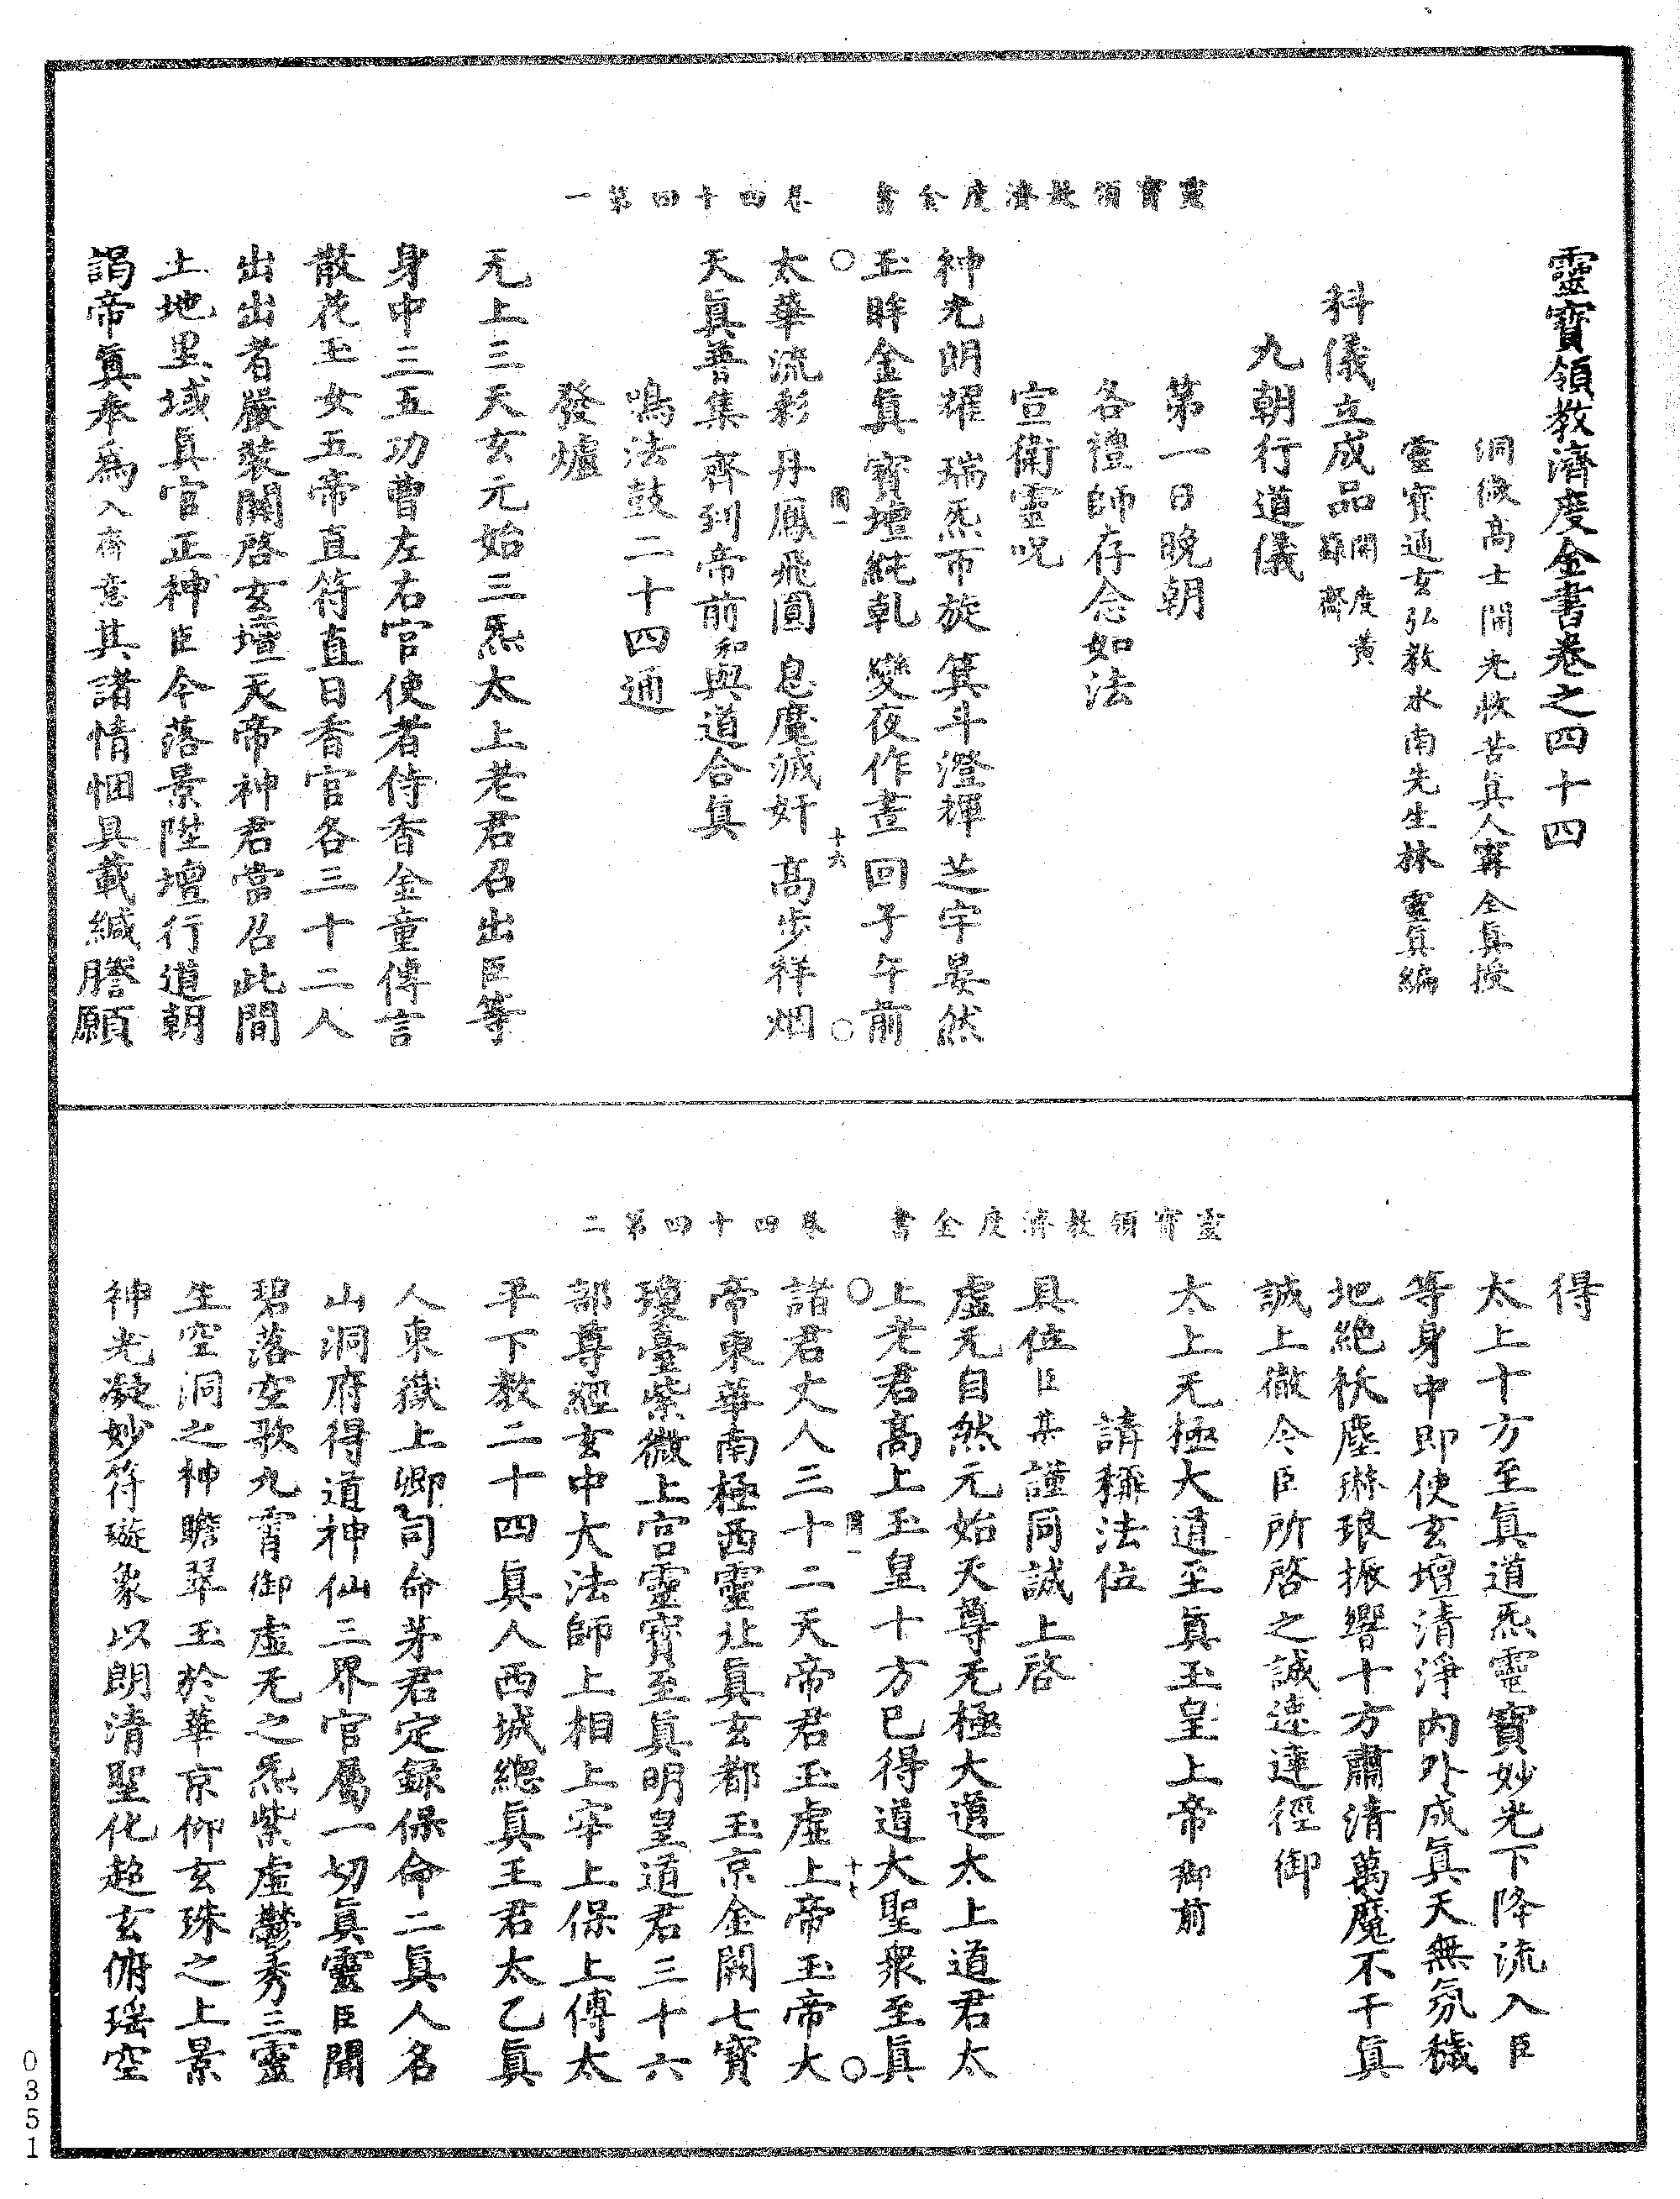 靈寶領教濟度金書 卷四十四第一
靈寶領教濟度金書卷之四十四
洞微高士開光救苦真人寗全真授
靈寶通玄弘教水南先生林靈真編
科儀立成品開度黃籙齋
九朝行道儀
第一日晚朝
各禮師存念如法
宣衛靈呪
神光朗耀 瑞炁帀旋 箕斗澄輝 芝宇晏然
玉眸金真 寶壇純乾 變夜作晝 回子午前
太華流彩 丹鳳飛圓 息魔滅奸 高步祥烟
天真普集 齊到帝前和與道合真
鳴法鼓二十四通
發爐
无上三天玄元始三炁太上老君召出臣等
身中三五功曹左右官使者侍香金童傳言
散花玉女五帝直符直日香官各三十二人
出出者嚴裝關啓玄壇天帝神君當召此間
土地里域真官正神臣今落景陞壇行道朝
謁帝真奉爲入齋意其諸情悃具載緘謄願
靈寶領教濟度金書 卷四十四第二
得
太上十方至真道炁靈寶妙光下降流入臣
等身中即使玄壇清淨內外成真天無氛穢
地絕祅塵琳琅振響十方肅清萬魔不干真
誠上徹令臣所啓之誠速達徑御
太上无極大道至真玉皇上帝御前
請稱法位
具位臣某謹同誠上啓
虛无自然元始天尊无極大道太上道君太
上老君高上玉皇十方已得道大聖衆至真
諸君丈人三十二天帝君玉虛上帝玉帝大
帝東華南極西靈北真玄都玉京金闕七寶
瓊臺紫微上宮靈寶至真明皇道君三十六
部尊經玄中大法師上相上宰上保上傅太
平下教二十四真人西城總真王君太乙真
人東嶽上卿司命茅君定錄保命二真人名
山洞府得道神仙三界官屬一切真靈臣聞
碧落空歌九霄御虛无之炁紫虛鬱秀三靈
生空洞之神瞻翠玉於華京仰玄珠之上景
神光凝妙符璇象以朗清聖化超玄俯瑶空
0351